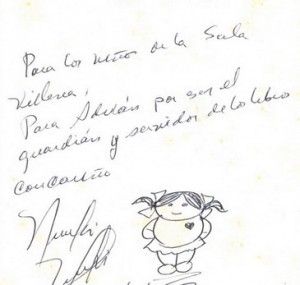 Para los niños de la Sala
Villena,
Para Adrián por ser el
guardián y servidor de los libros
con cariño